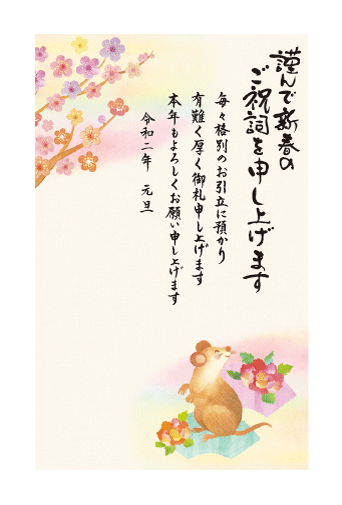 謹んで新春の
ご祝詞を申し上げます
毎々格別のお引立に預かり
有難く厚く御礼申し上げます
本年もよろしくお願い申し上げます
令和二年 元旦